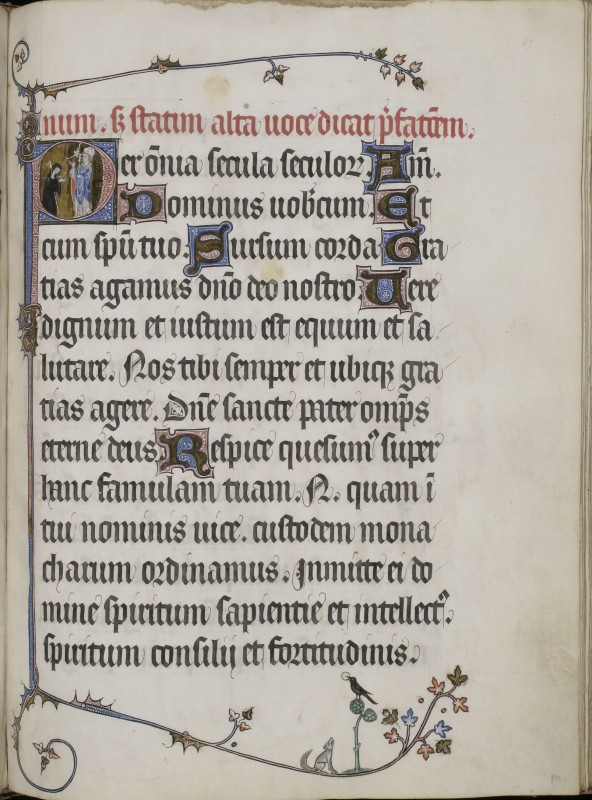 num. ⁊ statim alta uoce dicat p̄fatōem.
Per ōnia secula seculoꝝ Am̄.
Dominus uobcum Et
cum spū tuo. Sursum corda Gra
tias agamus dn̄o deo nostro Uere
dignum et iustum est equum et sa
lutare. Nos tibi semper et ubiqꝫ gra
tias agere. Dn̄e sancte pater omp̄s
eterne deus Respice quesumꝰ super
hanc famulam tuam. N. quam ī
tui nominis uice. custodem mona
charum ordinamus. Inmitte ei do
mine spiritum sapientie et intellectꝰ.
spiritum consilij et fortitudinis.